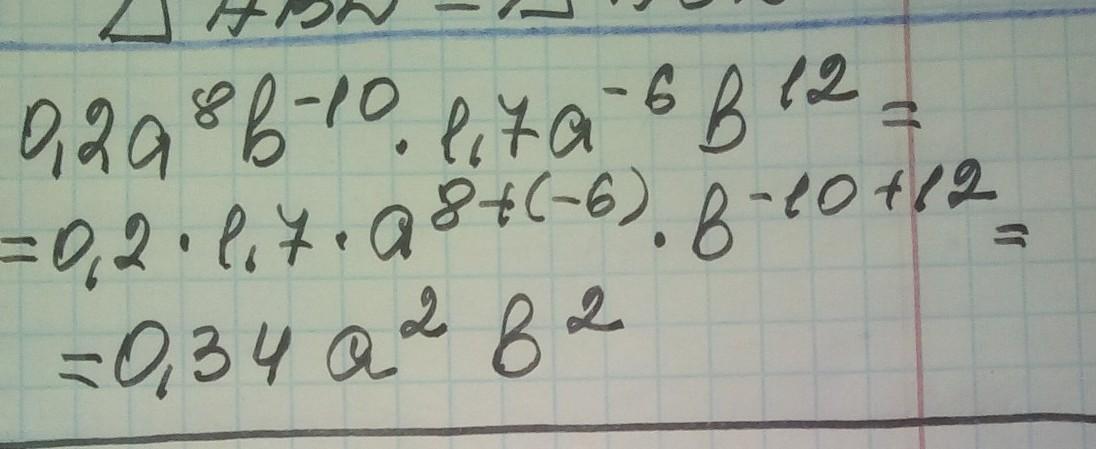 0,2a⁸b⁻¹⁰ · 1,7a⁻⁶b¹² =
= 0,2 · 1,7 · a⁸⁺⁽⁻⁶⁾ · b⁻¹⁰⁺¹² =
= 0,34 a² b²